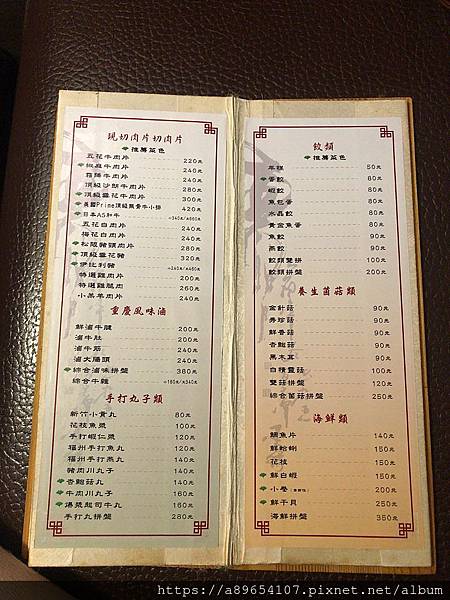 現切肉片切肉片
推薦菜色
五花牛肉片 220元
板腱牛肉片 240元
霜降牛肉片 240元
頂級沙朗牛肉片 280元
頂級雪花牛肉片 300元
美國Prime頂級無骨牛小排 420元
日本A5和牛 小340元/大660元
五花白肉片 240元
梅花白肉片 240元
松阪豬頸肉片 280元
頂級雪花豬 320元
伊比利豬 小240元/大460元
特選雞肉片 220元
特選雞腿肉 260元
小羔羊肉片 240元
重慶風味滷
鮮滷牛腱 200元
滷牛肚 200元
滷牛筋 240元
滷大腸頭 240元
綜合滷味拼盤 380元
綜合牛雜 小180元/大340元
手打丸子類
新竹小貢丸 80元
花枝魚漿 100元
手打蝦仁漿 120元
福州手打魚丸 140元
福州手打燕丸 140元
豬肉川丸子 140元
杏鮑菇丸 140元
牛肉川丸子 160元
湯漿起司牛丸 160元
手打丸拼盤 280元
餃類
推薦菜色
年糕 50元
香餃 90元
蝦餃 90元
魚包蛋 90元
水晶餃 90元
黃金魚蛋 90元
魚餃 90元
燕餃 90元
餃類雙拼 100元
餃類拼盤 200元
養生菌菇類
金針菇 90元
秀珍菇 90元
鮮香菇 90元
杏鮑菇 90元
黑木耳 90元
白精靈菇 100元
雙菇拼盤 120元
綜合菌菇拼盤 250元
海鮮類
鯛魚片 140元
鮮蛤蜊 150元
花枝 150元
鮮白蝦 150元
小卷 200元
鮮干貝 250元
海鮮拼盤 350元
https://a89654107.pixnet.net/album